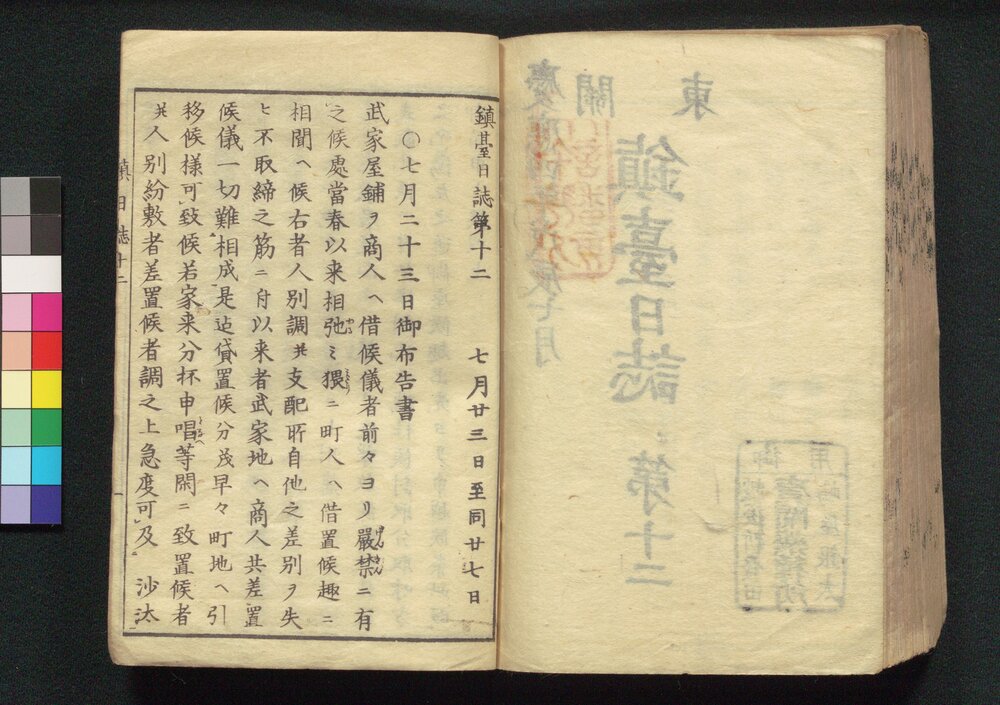 東
關
鎮臺日誌 第十二
慶應四年戊辰七月
鎮臺日誌第十二 七月廿三日至同廿七日
〇七月二十三日御布告書
武家屋鋪ヲ商人ヘ借候儀者前々ヨリ嚴禁ニ有
之候處當春以来相弛ミ猥ニ町人ヘ借置候趣ニ
相聞ヘ候右者人別調其支配所自他之差別ヲ失
ヒ不取締之筋ニ付以来者武家地ヘ商人共差置
候儀一切難相成是迠貸置候分茂早々町地ヘ引
移候様可致候若家来分抔申唱等閑ニ致置候者
其人別紛敷者差置候者調之上急度可及沙汰
鎮日誌十二